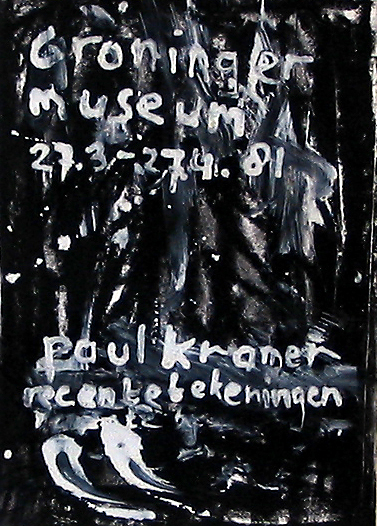 Groninger
museum
27.3.-27.4.81
paul kramer
recente tekeningen